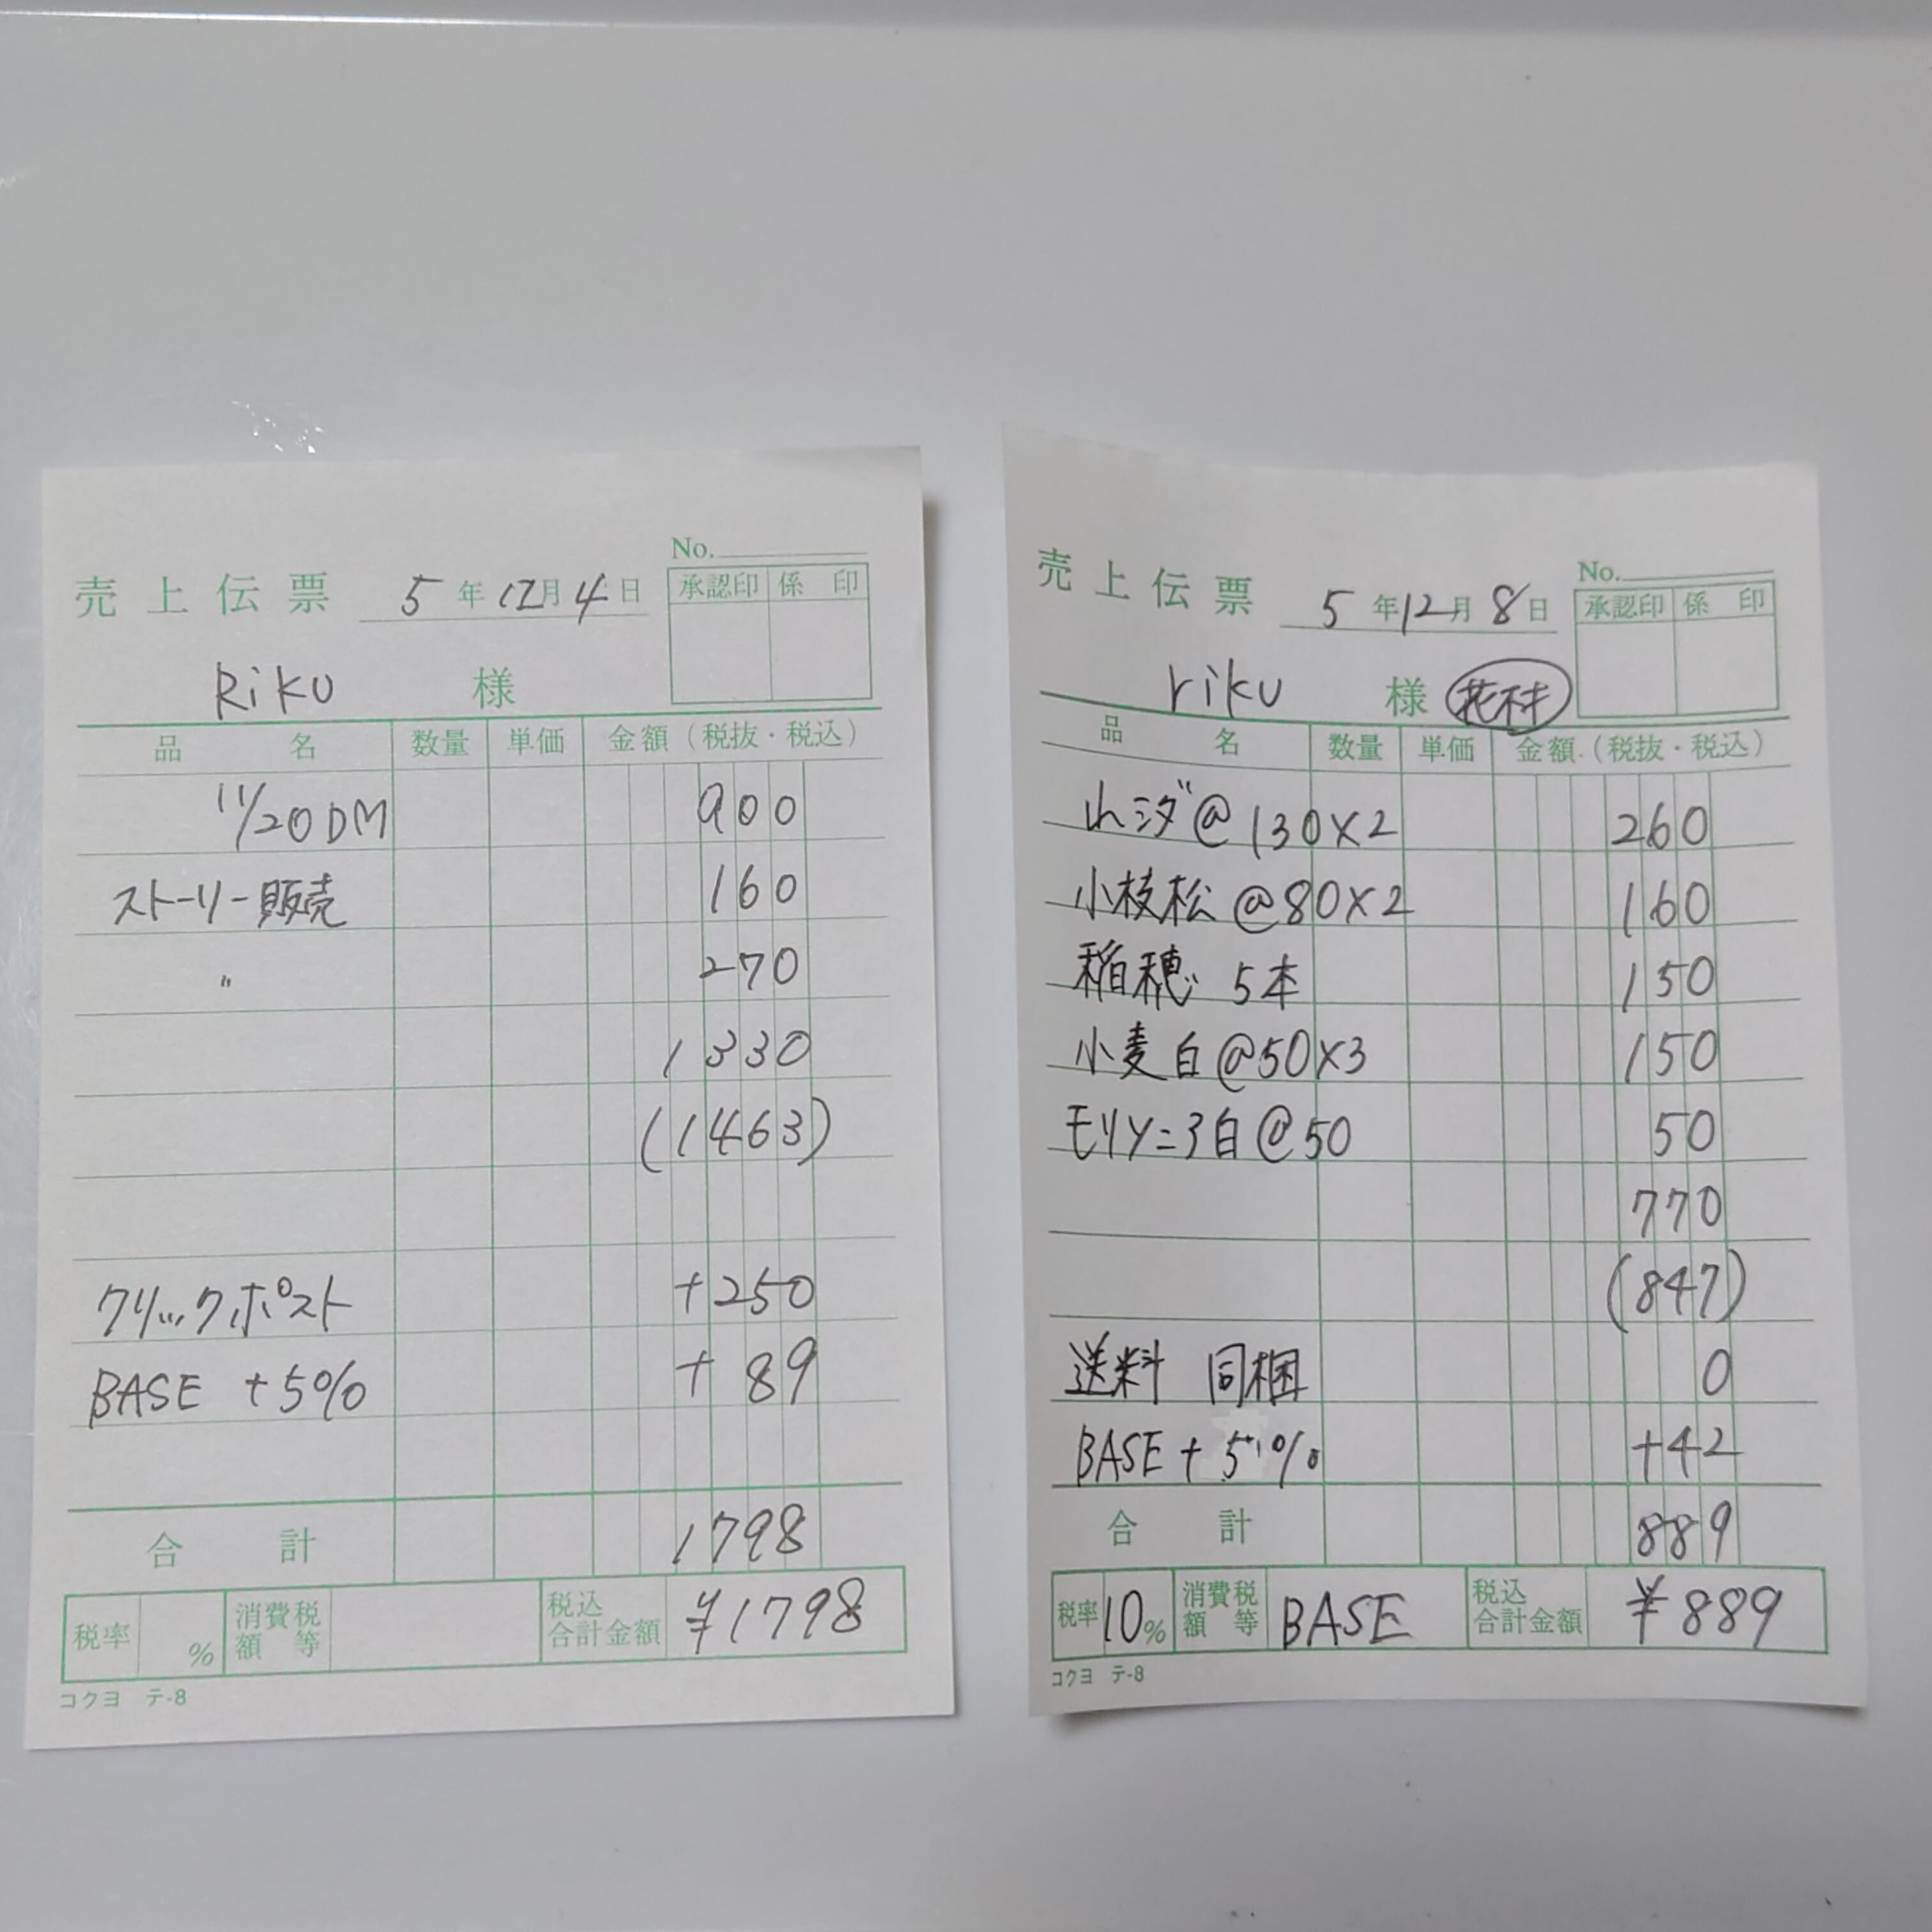 No.
売上伝票 5年12月4日
承認印 係印
Riku 様
品名 数量 単価 金額(税抜・税込)
11/20DM 900
ストーリー販売 160
〃 270
1330
(1463)
クリックポスト +250
BASE +5% +89
合計 1798
税率 % 消費税額等 税込合計金額 ¥1798
コクヨ テ-8
No.
売上伝票 5年12月8日
承認印 係印
riku 様 花材
品名 数量 単価 金額(税抜・税込)
山シダ@130×2 260
小枝松@80×2 160
稲穂 5本 150
小麦白@50×3 150
モリソニア白@50 50
770
(847)
送料 同梱 0
BASE+5% +42
合計 889
税率10% 消費税額等 BASE 税込合計金額 ¥889
コクヨ テ-8